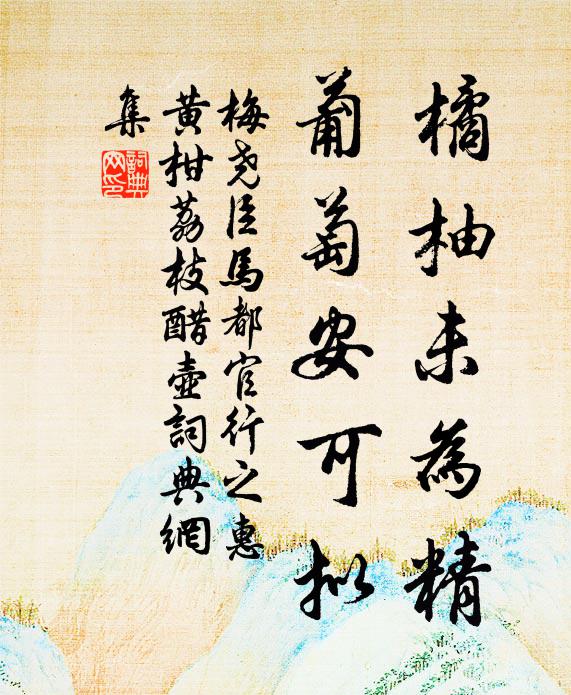 橘柚未為精
葡萄安可拟
梅尧臣馬都官行之惠
黄柑荔枝醋壺詞典網
集
詞典网印